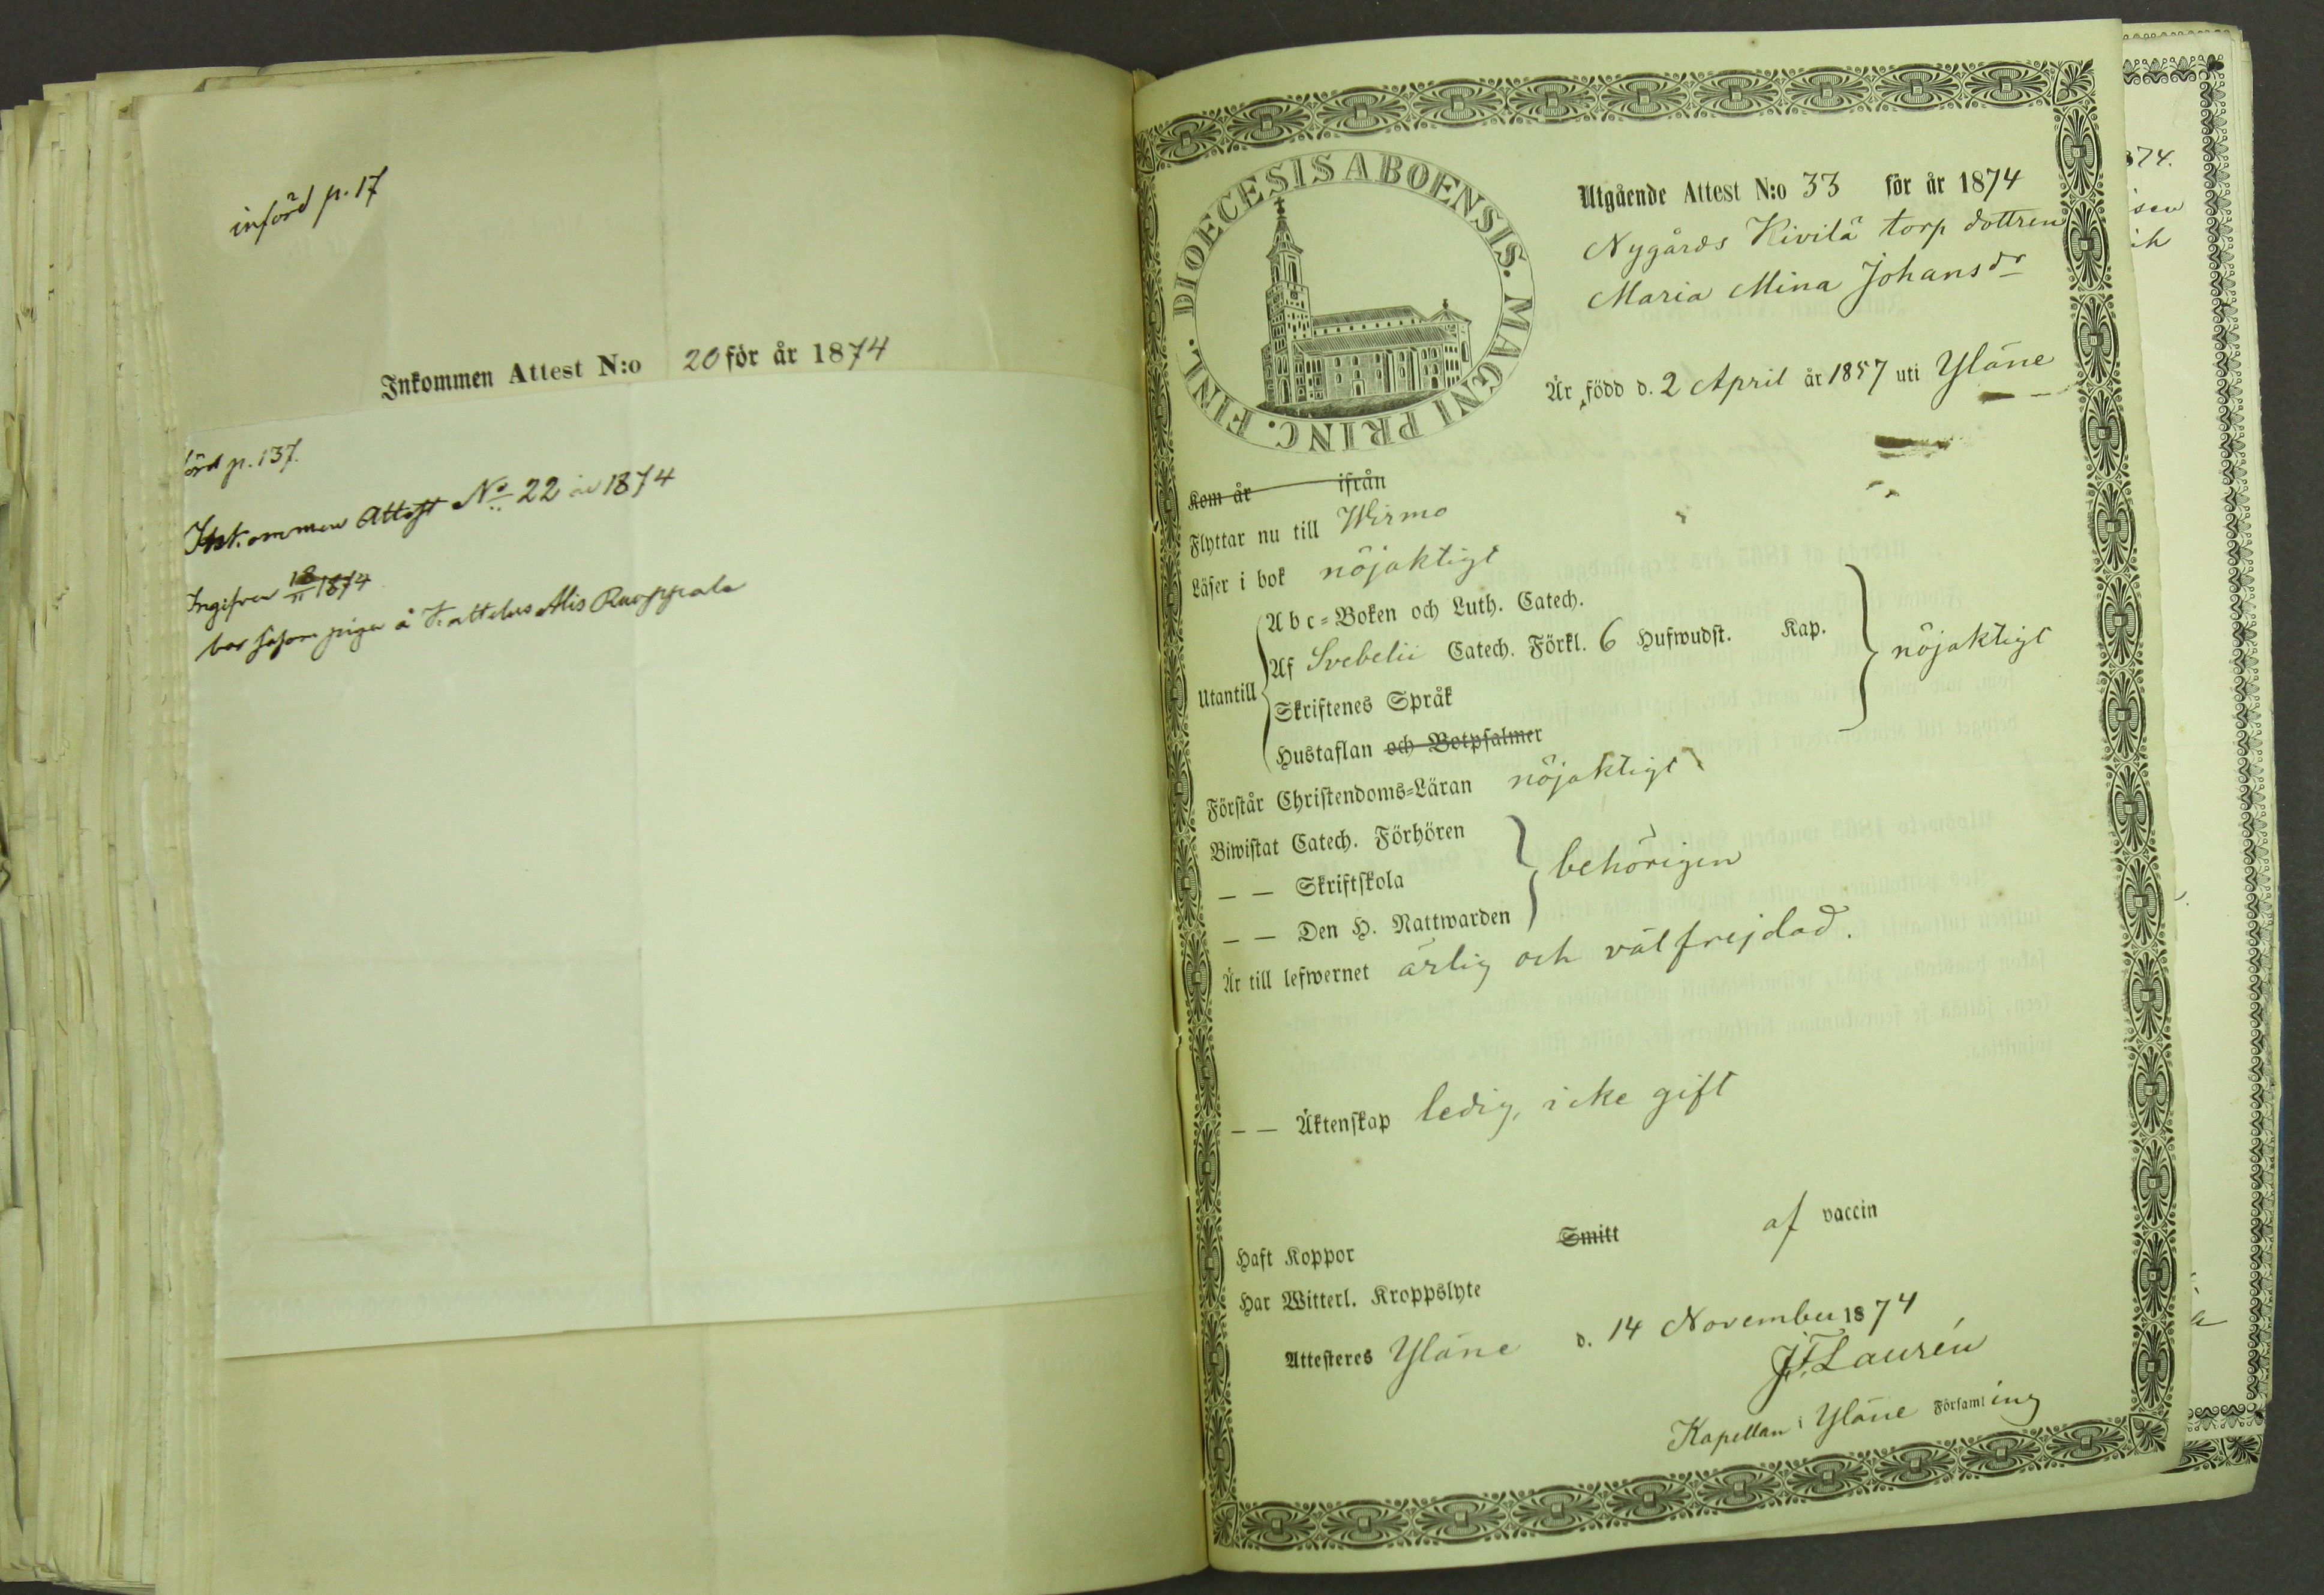 införd p. 17
Inkommen Attest N:o 20 för år 1874
örd p. 137.
Inkommen Attest No 22 år 1874
Ingifven 18/11 1874
bor såsom piga å Kattelus Alis Ruoppala
DIOECESIS ABOENSIS. MAGNI PRINC. FINL.
Utgående Attest N:o 33 för år 1874
Nygårds Kivilä torp dottren
Maria Mina Johansdr
Är född d. 2 April år 1857 uti Yläne
Kom år ifrån
Flyttar nu till Wirmo
Läser i bok nöjaktigt
Abc-Boken och Luth. Catech.
Af Svebelii Catech. Förkl. 6 Hufwudst. Kap.
Utantill nöjaktigt
Skriftenes Språk
Hustaflan och Botpsalmer
Förstår Christendoms-Läran nöjaktigt
Biwistat Catech. Förhören
— — Skriftskola behörigen
— — Den H. Nattwarden
Är till lefwernet ärlig och välfrejdad.
— — Äktenskap ledig, icke gift
Haft Koppor Smitt af vaccin
Har Witterl. Kroppslyte
Attesteres Yläne d. 14 November 1874
J. F. Laurén
Kapellan i Yläne Församling
874.